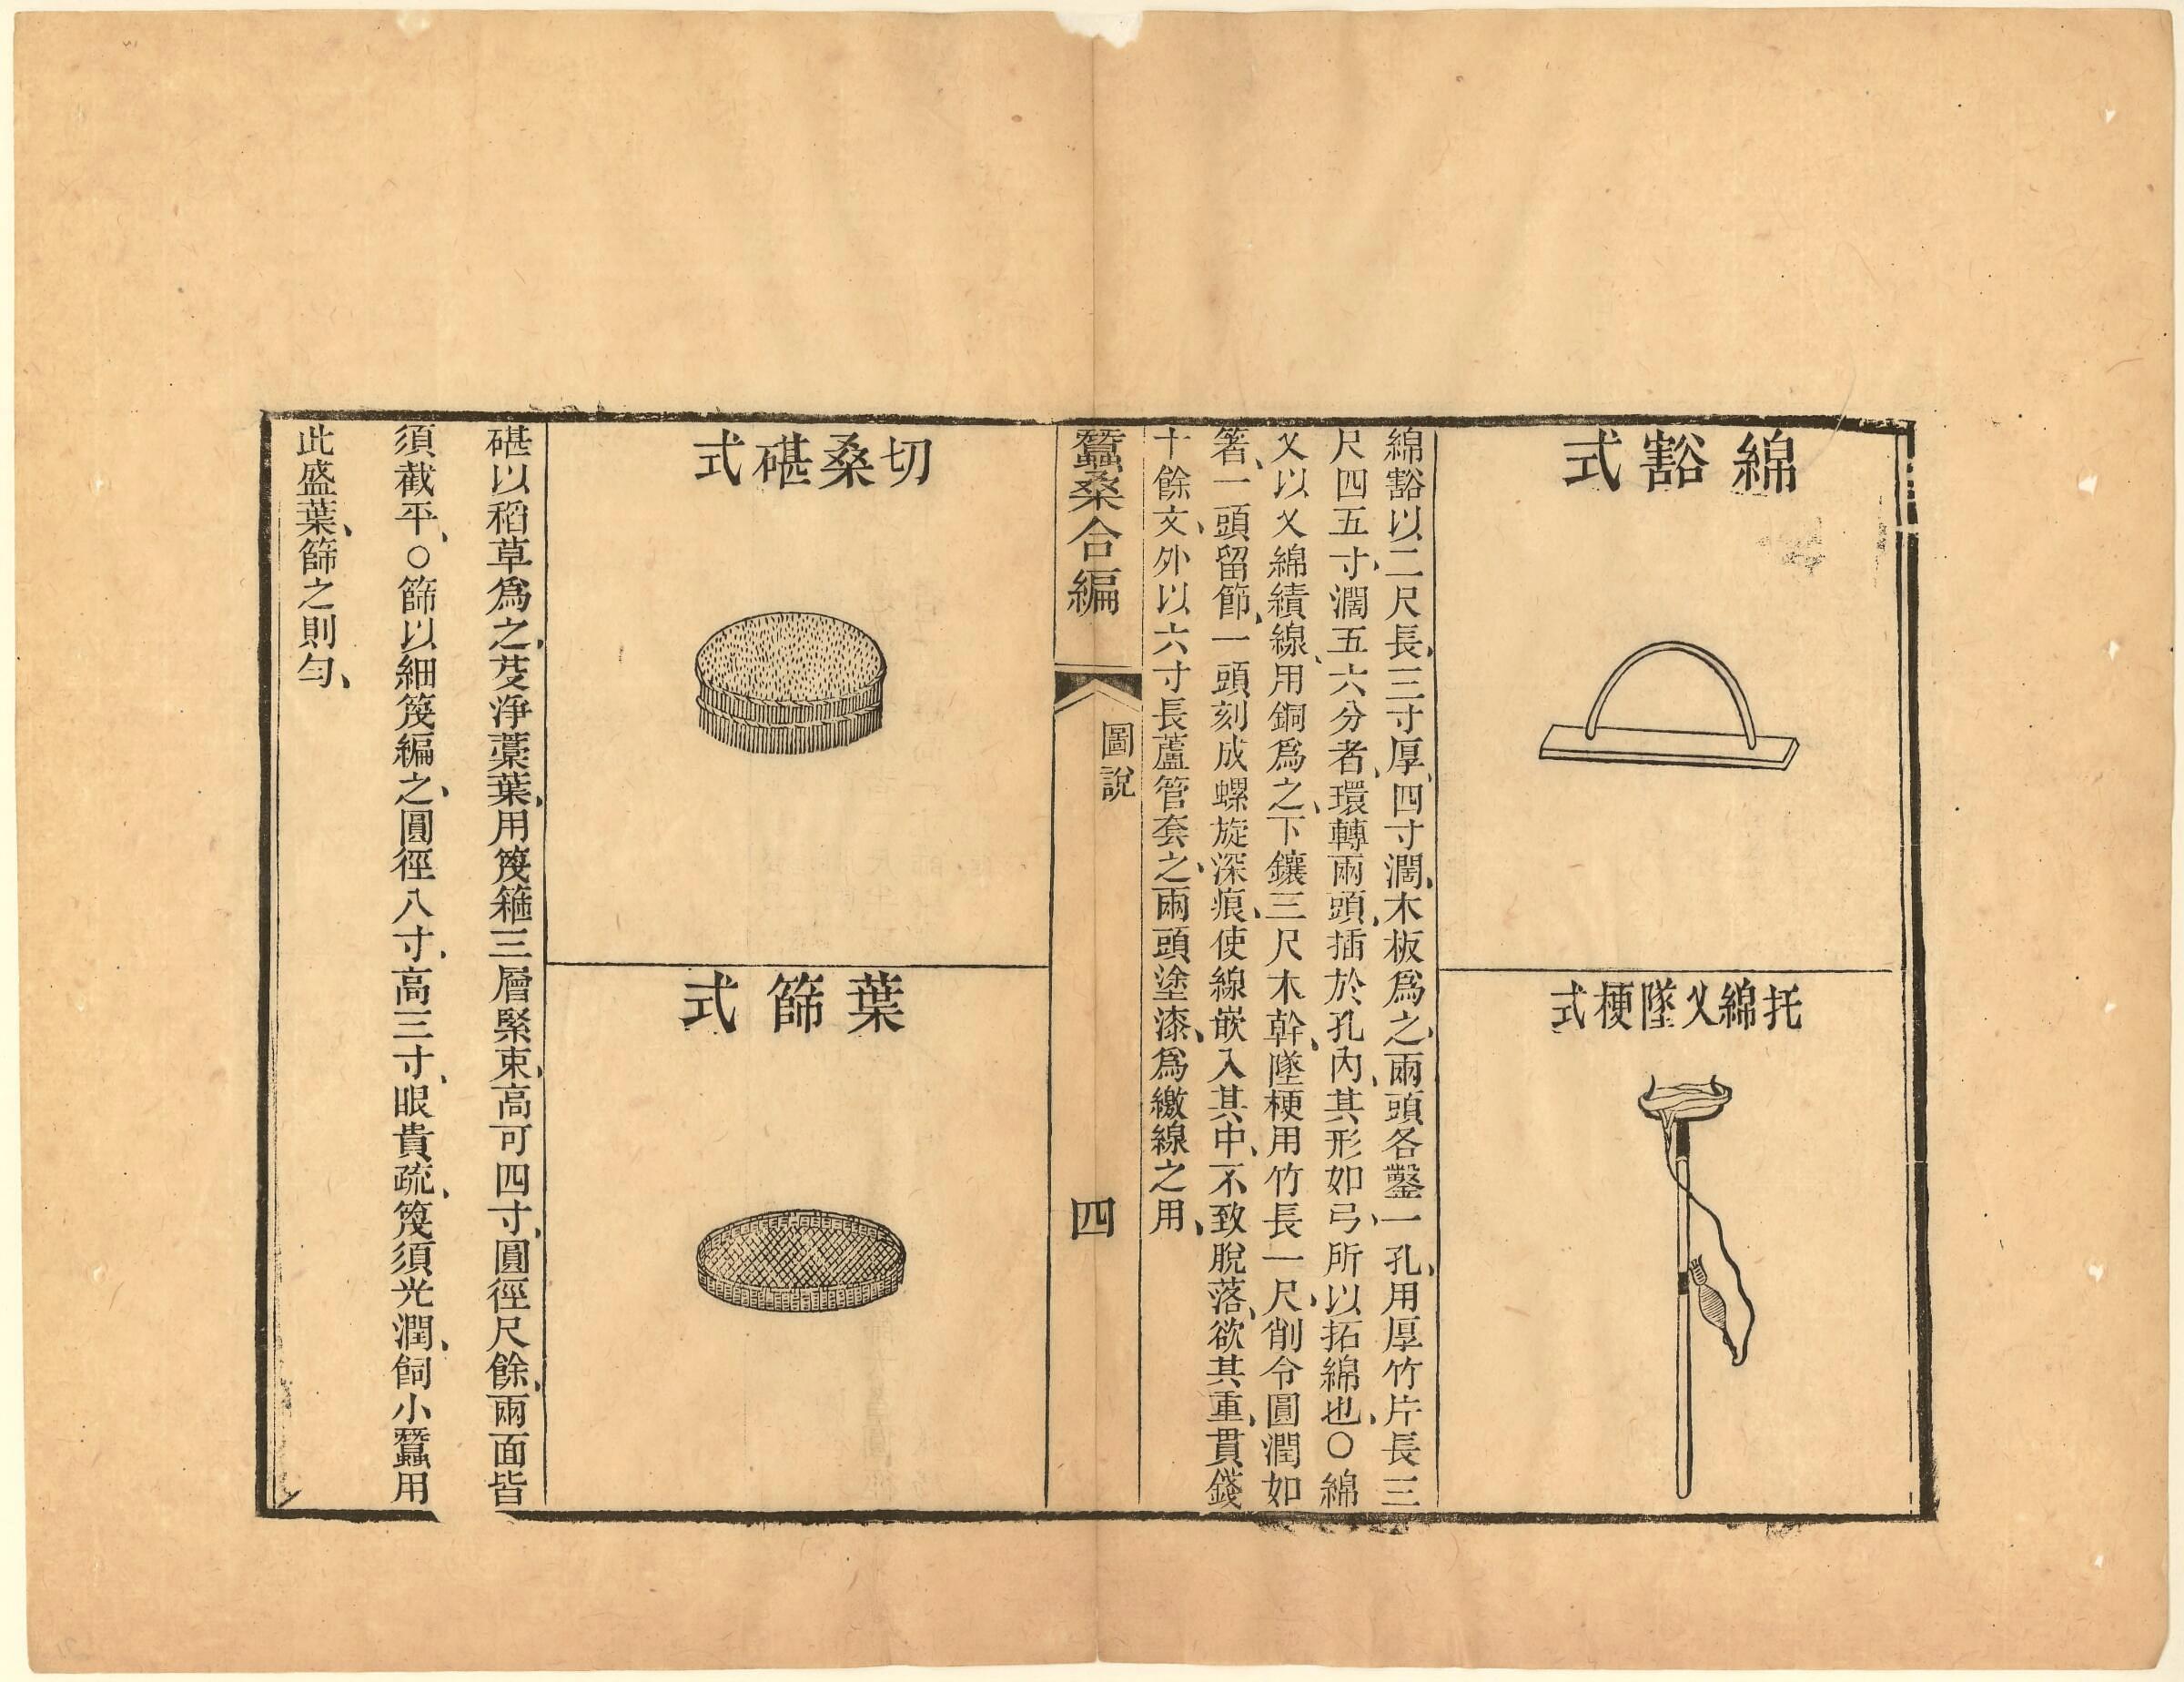 綿豁式
托綿㕚墜梗式
綿豁以二尺長、三寸厚、四寸濶、木板爲之、兩頭各鑿一孔、用厚竹片長三
尺四五寸、濶五六分者、環轉兩頭、插於孔內、其形如弓、所以拓綿也、○綿
㕚以㕚綿績線、用銅爲之、下鑲三尺木幹、墜梗用竹長一尺、削令圓潤如
箸、一頭留節、一頭刻成螺旋深痕、使線嵌入其中、不致脫落、欲其重、貫錢
十餘文、外以六寸長蘆管套之、兩頭塗漆、爲繳線之用、
蠶桑合編
圖說
四
切桑碪式
葉篩式
碪以稻草爲之、芟淨藁葉、用篾箍三層緊束、高可四寸、圓徑尺餘、兩面皆
須截平、○篩以細篾編之、圓徑八寸、高三寸、眼貴疏、篾須光潤、飼小蠶用
此盛葉、篩之則勻、